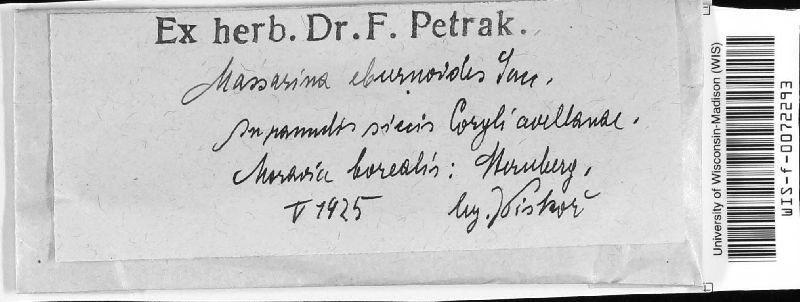 Ex herb. Dr. F. Petrak.
Massarina eburnoides Sacc.
In ramulis siccis Coryli avellanae.
Moravia borealis: Sternberg,
V 1925 leg. Piskoř
University of Wisconsin-Madison (WIS)
WIS-f-0072293